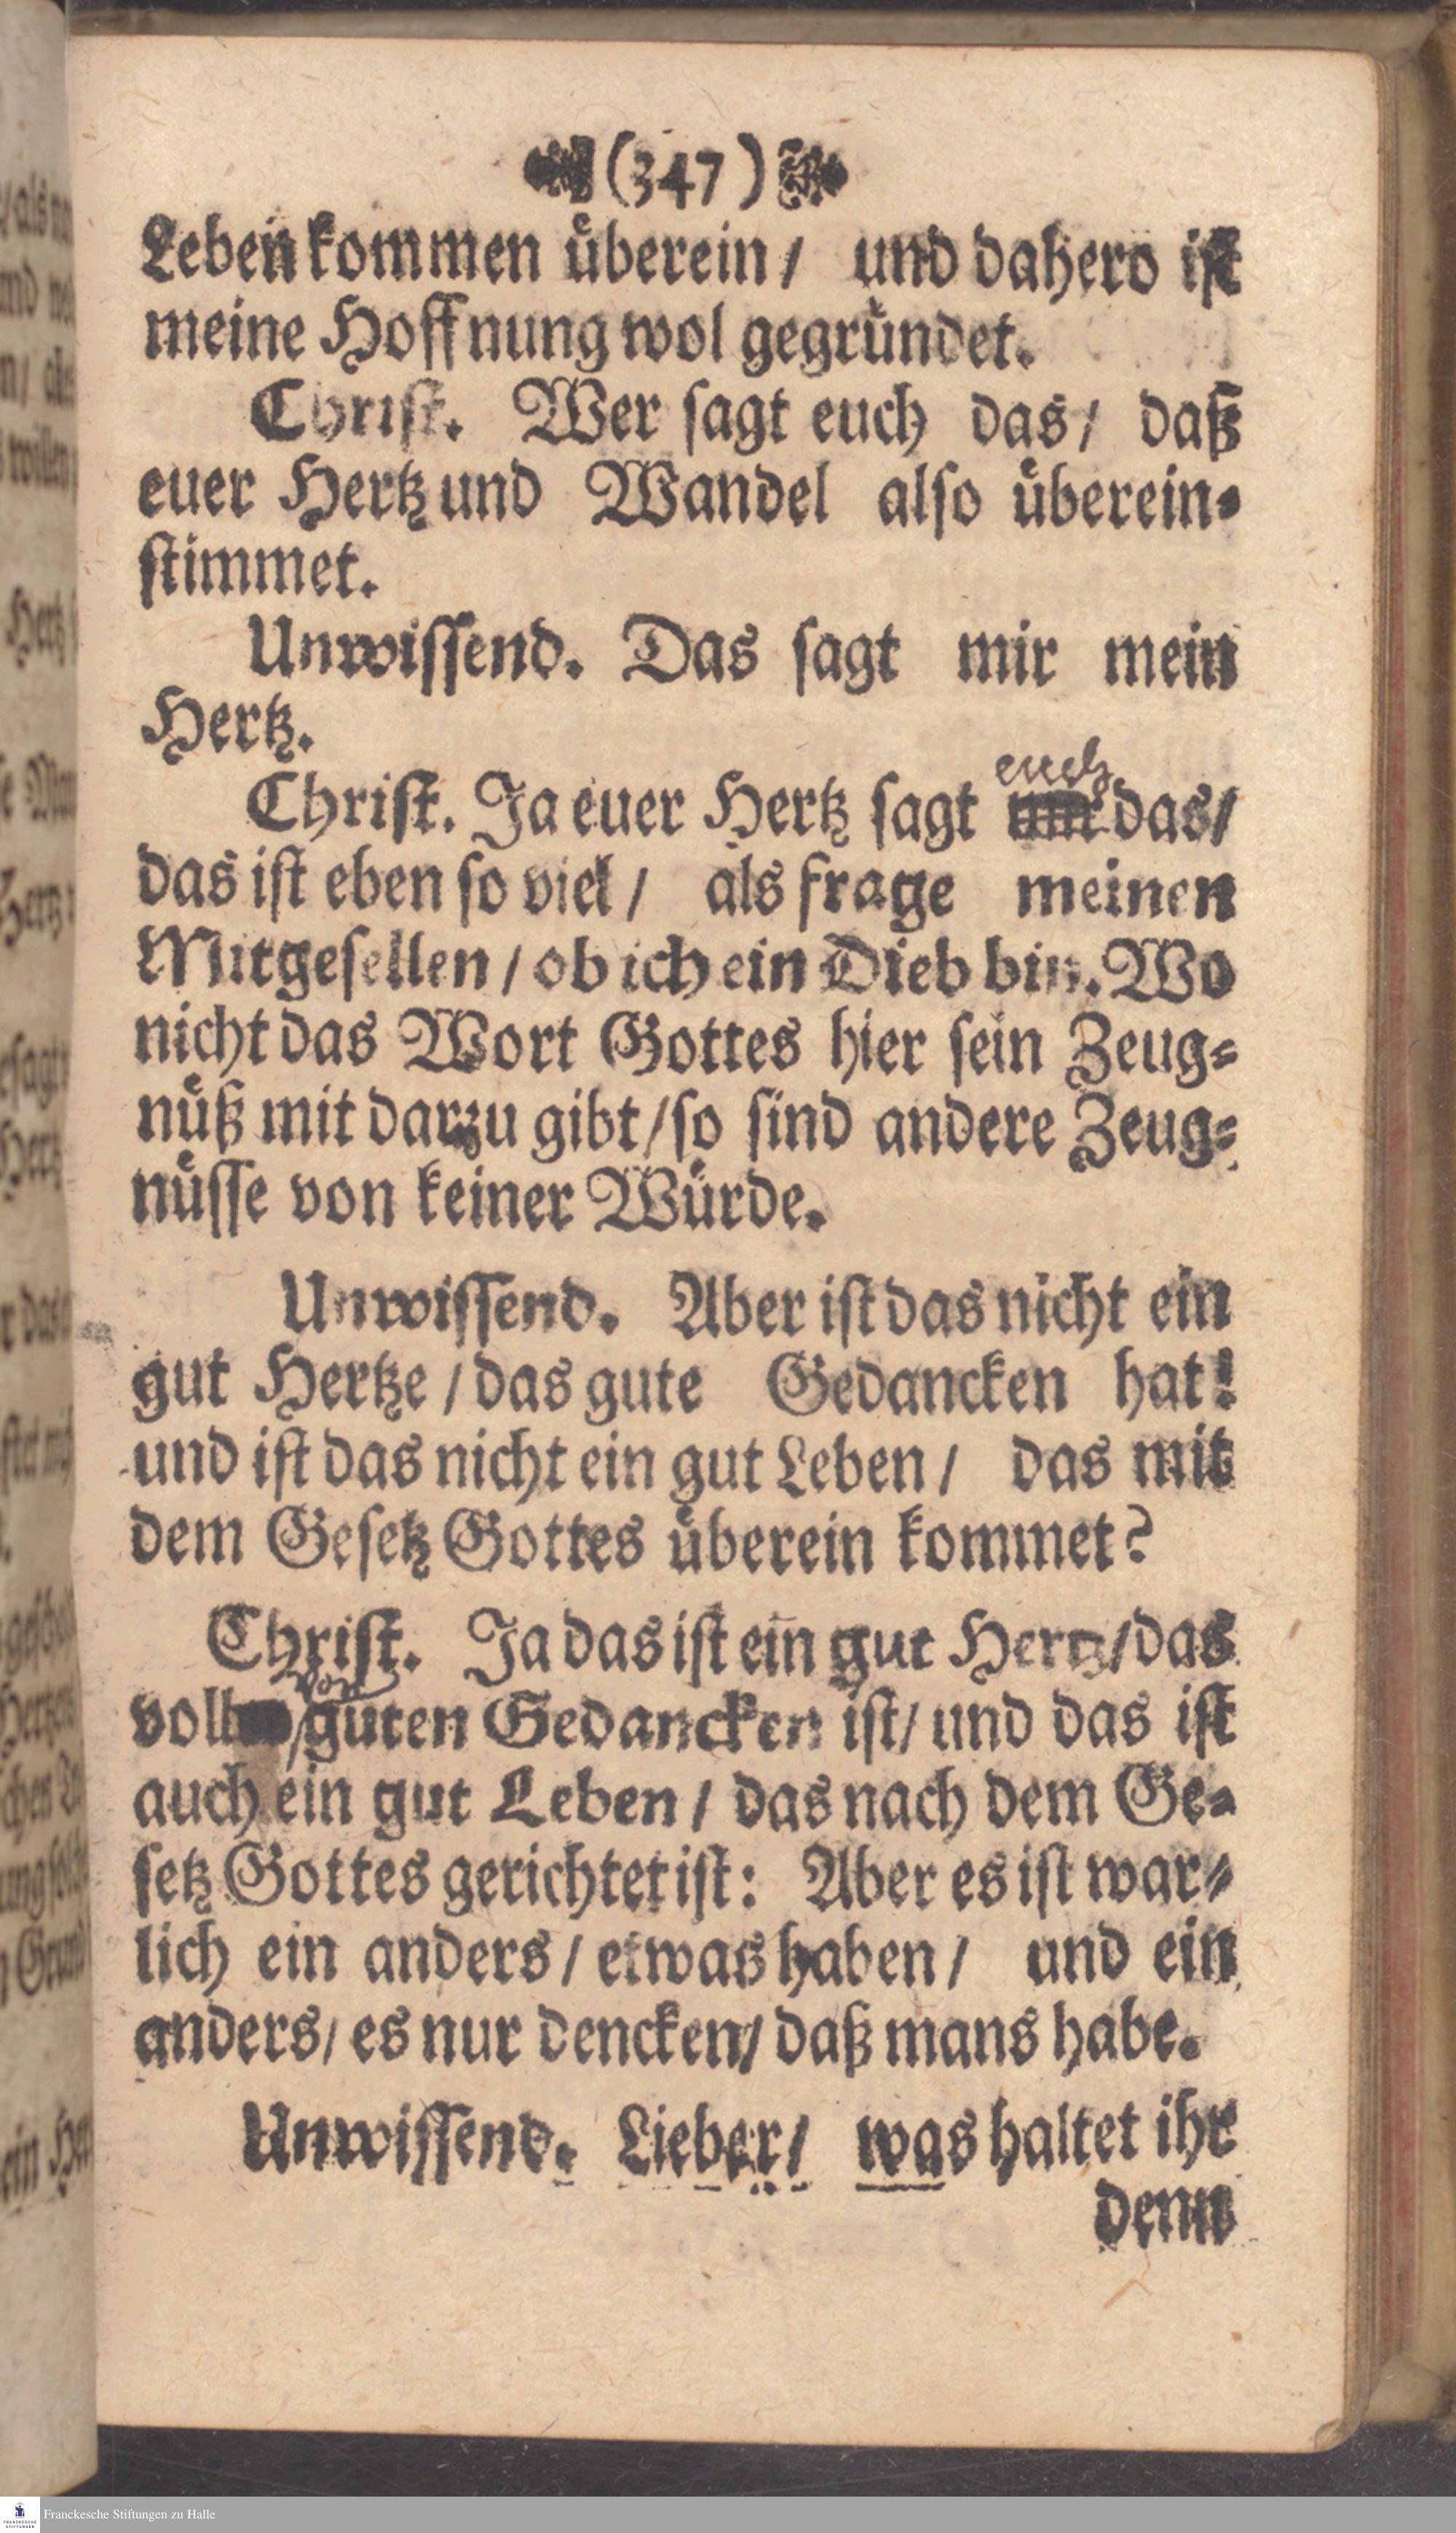 (347)
Leben kommen überein / und dahero ist
meine Hoffnung wol gegründet.
Christ. Wer sagt euch das / daß
euer Hertz und Wandel also überein-
stimmet.
Unwissend. Das sagt mir mein
Hertz.
euch
Christ. Ja euer Hertz sagt das /
das ist eben so viel / als frage meinen
Mitgesellen / ob ich ein Dieb bin. Wo
nicht das Wort Gottes hier sein Zeug-
nüß mit darzu gibt / so sind andere Zeug-
nüsse von keiner Würde.
Unwissend. Aber ist das nicht ein
gut Hertze / das gute Gedancken hat!
und ist das nicht ein gut Leben / das mit
dem Gesetz Gottes überein kommet?
Christ. Ja das ist ein gut Hertz / das
von
voll guten Gedancken ist / und das ist
auch ein gut Leben / das nach dem Ge-
setz Gottes gerichtet ist: Aber es ist war-
lich ein anders / etwas haben / und ein
anders / es nur dencken / daß mans habe.
Unwissend. Lieber / was haltet ihr
denn
Franckesche Stiftungen zu Halle
FRANCKESCHE
STIFTUNGEN